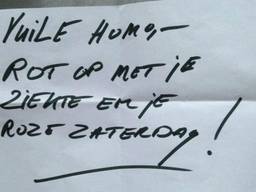 VUILE HOMO,-
ROT OP MET JE
ZIEKTE EN JE
ROZE ZATERDAG!